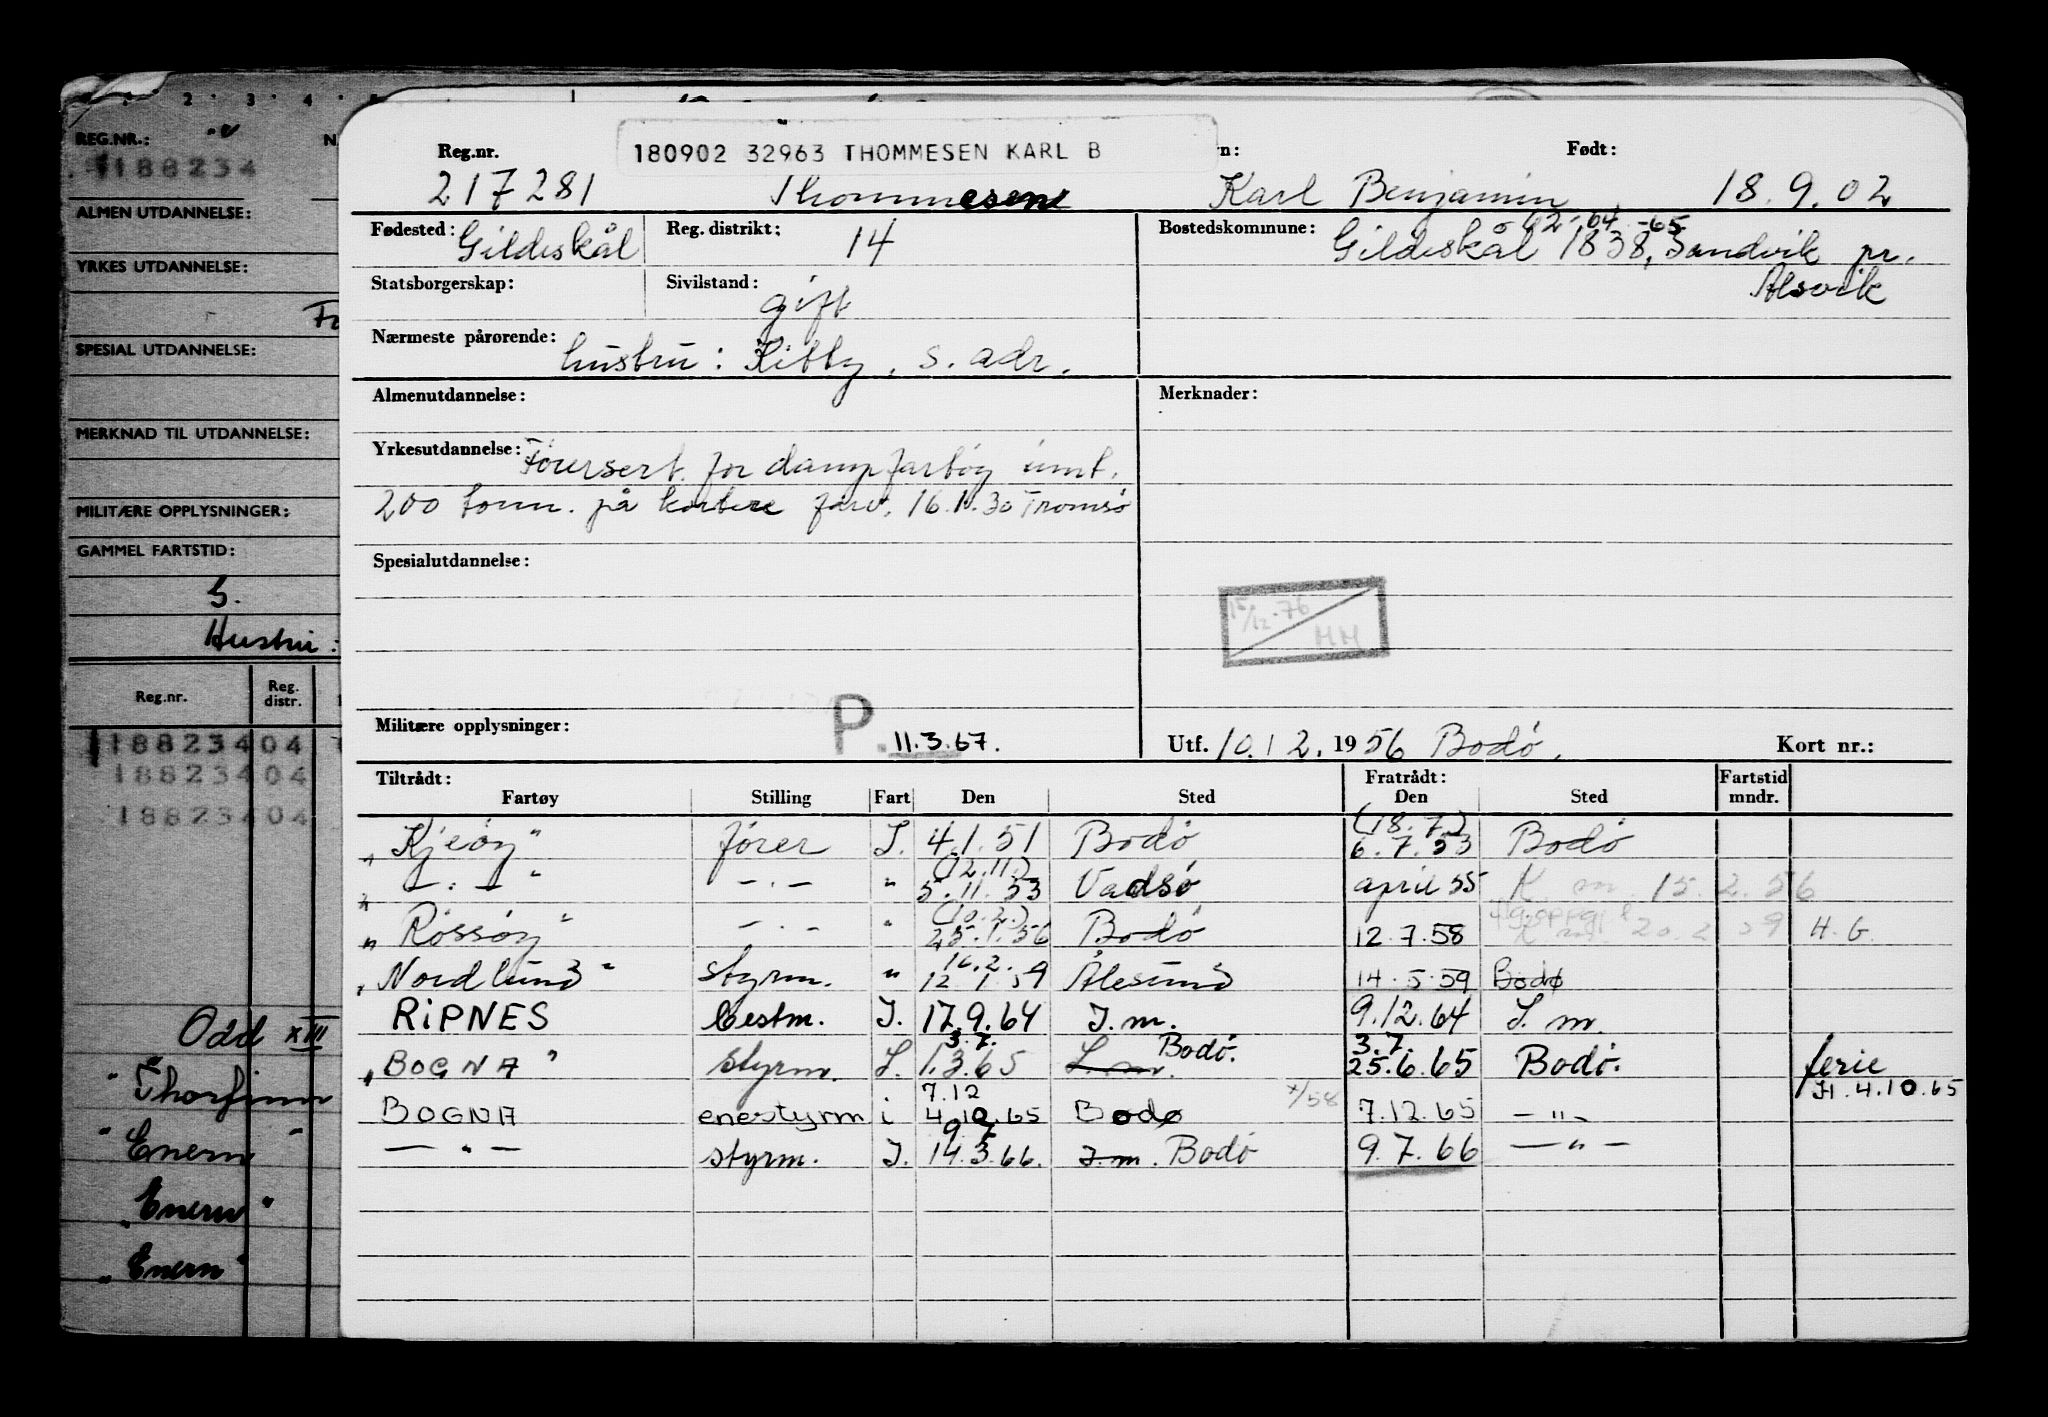 REG.NR.:
188234
ALMEN UTDANNELSE:
YRKES UTDANNELSE:
SPESIAL UTDANNELSE:
MERKNAD TIL UTDANNELSE:
MILITÆRE OPPLYSNINGER:
GAMMEL FARTSTID:
G.
Hustru:
Reg.nr. Reg. distr.
188234 04
188234 04
188234 04
Odd XIII
"Thorfinn
"Enern"
"Enern"
"Enern"
180902 32963 THOMMESEN KARL B
Reg.nr. Født:
217281 Thommesen Karl Benjamin 18.9.02
Fødested: Gildeskål Reg. distrikt: 14 Bostedskommune: Gildeskål 1838, Sandvik pr.
62-64-65
Alsvik
Statsborgerskap: Sivilstand: gift
Nærmeste pårørende: hustru: Kitty, s. adr.
Almenutdannelse: Merknader:
Yrkesutdannelse: Førersert. for dampfartøy innt.
200 tonn. på kortere farv. 16.1.30 Tromsø
Spesialutdannelse:
15/12-76
HH
Militære opplysninger: P. 11.3.67. Utf. 10.12.1956 Bodø. Kort nr.:
Tiltrådt: Fratrådt: Fartstid
Fartøy Stilling Fart Den Sted Den Sted mndr.
(18.7.)
"Kjeøy" fører I. 4.1.51 Bodø 6.7.53 Bodø
(12.11.)
"—.—" —.— " 5.11.53 Vadsø april 55 K 15.2.56
(10.2.)
"Røssøy" —.— " 25.1.56 Bodø 12.7.58 H.G.
16.2.
"Nordlund" styrm. " 12.1.59 Ålesund 14.5.59 Bodø
RiPNES bestm. I. 17.9.64 I.m. 9.12.64 I.m.
3.7. Bodø. 3.7.
"BOGNA" styrm. I. 1.3.65 I.m. 25.6.65 Bodø. ferie
7.12 H.4.10.65
BOGNA enestyrm i 4.10.65 Bodø x/58 7.12.65 —"—
9.7
—"— styrm. I. 14.3.66. I.m. Bodø 9.7.66 —"—